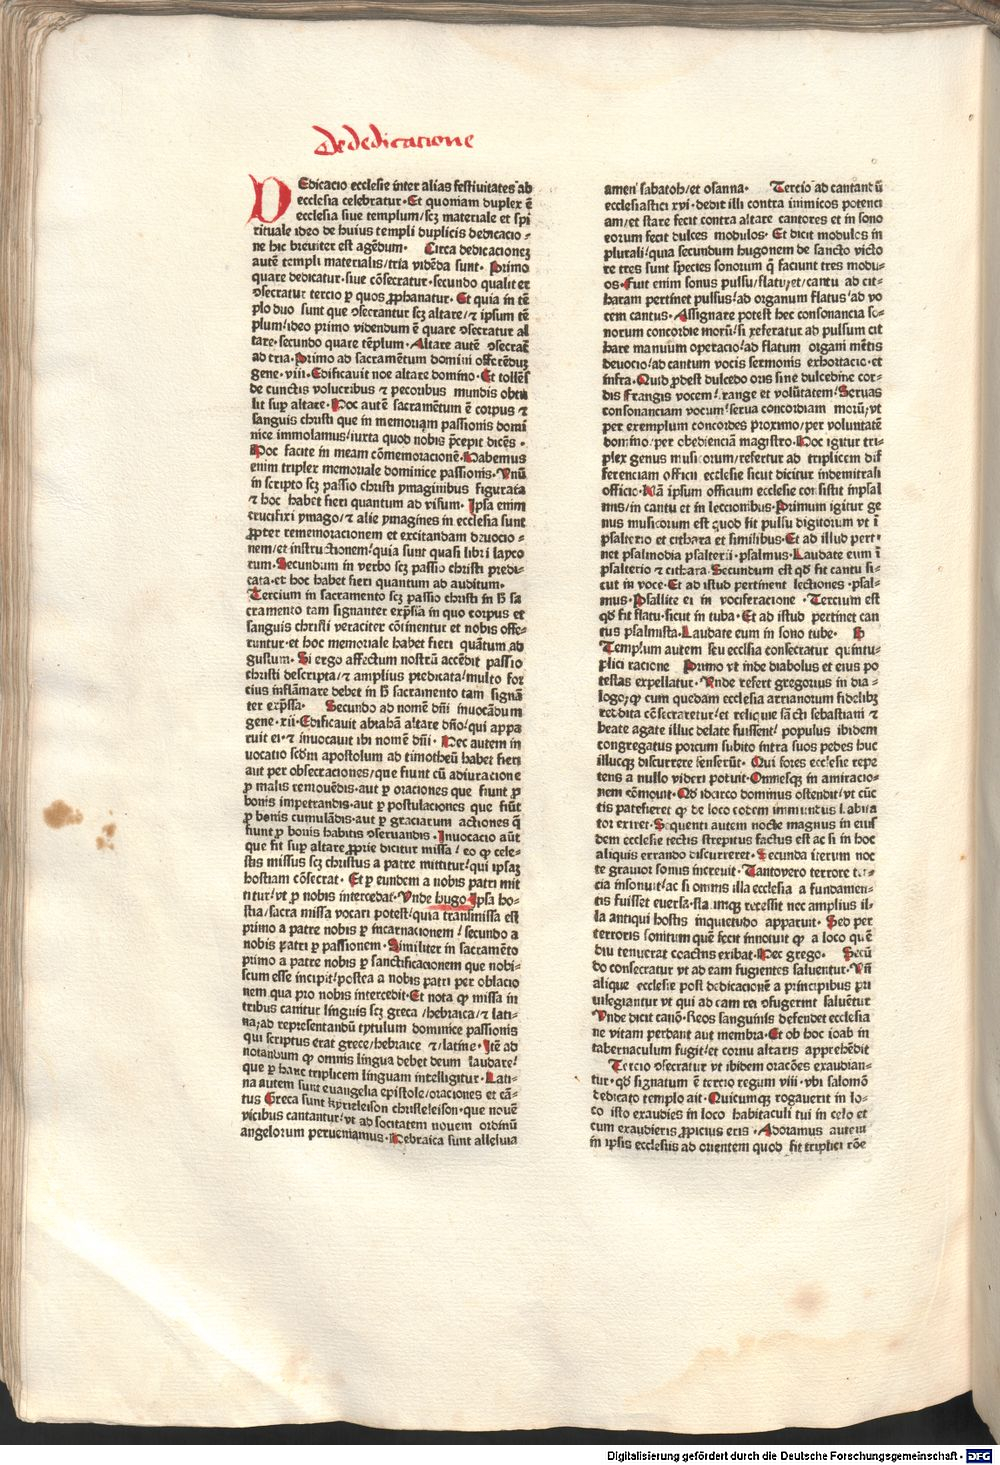 De dedicatione
DEdicacio ecclesie inter alias festiuitates ab
ecclesia celebratur. Et quoniam duplex ē
ecclesia siue templum/scȝ materiale et spi
rituale ideo de huius templi duplicis dedicacio⸗
ne hic breuiter est agēdum. Circa dedicacioneȝ
autē templi materialis/tria vidēda sunt. Primo
quare dedicatur. siue cōsecratur. secundo qualit̾ er
ꝯsecratur tercio ꝑ quos ꝓphanatur. Et quia in tē
plo duo sunt que ꝯsecrantur scȝ altare/⁊ ipsum tē
plum/ideo primo videndum ē quare ꝯsecratur al
tare. secundo quare tēplum. Altare autē ꝯsecrat̄
ad tria. Primo ad sacramētum domini offerēduȝ
gene. viii. Edificauit noe altare domino. Et tollēs
de cunctis volucribus ⁊ pecoribus mundis obtu
lit suꝑ altare. Hoc autē sacramētum ē corpus ⁊
sanguis christi que in memoriam passionis domi
nice immolamus/iuxta quod nobis p̄cepit dicēs.
Hoc facite in meam cōmemoracionē. Habemus
enim triplex memoriale dominice passionis. Vnū
in scripto scȝ passio christi ymaginibus figurata
⁊ hoc habet fieri quantum ad visum. Ipsa enim
crucifixi ymago/⁊ alie ymagines in ecclesia sunt
ꝓpter rememoracionem et excitandam deuocio⸗
nem/et instructionem/quia sunt quasi libri layco
rum. Secundum in verbo scȝ passio christi predi⸗
cata. et hoc habet fieri quantum ad auditum.
Tercium in sacramento scȝ passio christi in h̄ sa
cramento tam signanter exp̄ssa in quo corpus et
sanguis christi veraciter cōtinentur et nobis offe⸗
runtur. et hoc memoriale habet fieri quātum ad
gustum. Si ergo affectum nostrū accēdit passio
christi descripta/⁊ amplius predicata/multo for
cius inflāmare debet in h̄ sacramento tam signā
ter exp̄ssa. Secundo ad nomē dn̄i inuocādum
gene. xii. Edificauit abrahā altare dn̄o/qui appa
ruit ei. ⁊ inuocauit ibi nomē dn̄i. Hec autem in
uocatio scd̄m apostolum ad timotheū habet fieri
aut per obsecraciones/que fiunt cū adiuracione
ꝓ malis remouēdis. aut ꝑ oraciones que fiunt ꝓ
bonis impetrandis. aut ꝑ postulaciones que fiūt
ꝓ bonis cumulādis. aut ꝑ graciarum actiones q̄
fiunt ꝓ bonis habitis ꝯseruandis. Inuocacio aūt
que fit suꝑ altare/ꝓprie dicitur missa/ eo ꝙ cele⸗
stis missus scȝ christus a patre mittitur/qui ipsaȝ
hostiam cōsecrat. Et ꝑ eundem a nobis patri mit
titur/vt ꝓ nobis intercedat. Vnde hugo. Ipsa ho⸗
stia/sacra missa vocari potest/quia transmissa est
primo a patre nobis ꝑ incarnacionem/ secundo a
nobis patri ꝑ passionem. Similiter in sacramēto
primo a patre nobis ꝑ sanctificacionem que nobi⸗
scum esse incipit/postea a nobis patri per oblacio
nem qua pro nobis intercedit. Et nota ꝙ missa in
tribus canitur linguis scȝ greca /hebraica/⁊ lati⸗
na/ad representandū tytulum dominice passionis
qui scriptus erat grece/hebraice ⁊/latine. Itē ad
notandum ꝙ omnis lingua debet deum laudare/
que ꝑ hanc triplicem linguam intelligitur. Lati⸗
na autem sunt euangelia epistole/oraciones et cā⸗
tus Greca sunt kyrieleison christeleison. que nouē
vicibus cantantur/vt ad socitatem nouem ordinū
angelorum perueniamus. Hebraica sunt alleluia
amen sabaoth/et osanna. Tercio ad cantandū
ecclesiastici xvi. dedit illi contra inimicos potenci
am/et stare fecit contra altare cantores et in sono
eorum fecit dulces modulos. Et dicit modulos in
plurali/quia secundum hugonem de sancto victo
re tres sunt species sonorum q̄ faciunt tres modu⸗
os. Fuit enim sonus pulsu/flatu/et/cantu ad cit⸗
haram pertinet pulsus/ad organum flatus/ad vo
cem cantus. Assignare potest hec consonancia so⸗
norum concordie morū/si referatur ad pulsum cit
hare manuum operacio/ad flatum organi mētis
deuocio/ad cantum vocis sermonis exhortacio. et
infra. Quid ꝓdest dulcedo oris sine dulcedine cor⸗
dis frangis vocem/ frange et volūtatem/Seruas
consonanciam vocum/serua concordiam morū/vt
per exemplum concordes proximo/per voluntatē
domino/per obedienciam magistro. Hoc igitur tri⸗
plex genus musicorum/refertur ad triplicem dif
ferenciam officii ecclesie sicut dicitur indemitrali
officio. Nā ipsum officium ecclesie consistit inpsal
mis/in cantu et in leccionibus. Primum igitur ge
nus musicorum est quod fit pulsu digitorum vt ī
psalterio et cithara et similibus. Et ad illud perti⸗
net psalmodia psalterii. psalmus. Laudate eum ī
psalterio ⁊ cithara. Secundum est qd̄ fit cantu si⸗
cut in voce. Et ad istud pertinent lectiones. psal⸗
mus. Psallite ei in vociferacione. Tercium est
qd̄ fit flatu. sicut in tuba. Et ad istud pertinet can
tus psalmista. Laudate eum in sono tube.
Templum autem seu ecclsia consecratur quintu⸗
plici racione Primo vt inde diabolus et eius po
testas expellatur. Vnde refert gregorius in dia⸗
logo/ꝙ cum quedam ecclesia arrianorum fidelibȝ
reddita cōsecraretur/et reliquie sācti sebastiani ⁊
beate agate illuc delate fuissent/ populus ibidem
congregatus porcum subito intra suos pedes huc
illucqȝ discurrere senserūt. Qui fores ecclesie repe
tens a nullo videri potuit. Omnesqȝ in amiracio⸗
nem cōmouit. Qd̄ idcirco dominus ostendit/vt cūc
tis patefieret ꝙ de loco eodem inmundus habita
tor exiret. Sequenti autem nocte magnus in eius
dem ecclesie tectis strepitus factus est ac si in hoc
aliquis errando discurreret. Secunda iterum noc
te grauior sonus increuit. Tantovero terrore
cia insonuit/ac si omnis illa ecclesia a fundamen⸗
tis fuisset euersa. recessit nec amplius il⸗
la antiqui hostis inquietudo apparuit. Sed per
terroris sonitum quē fecit innotuit ꝙ a loco quē
diu tenuerat coactus exibat. Hec grego. Secū
do consecratur vt ad eam fugientes saluentur. Vn̄
alique ecclesie post dedicacionē a principibus pri
uilegiantur vt qui ad eam rei ꝯfugerint saluētur
Vnde dicit canō. Reos sanguinis defendet ecclesia
ne vitam perdant aut membra. Et ob hoc ioab in
tabernaculum fugit/et cornu altaris apprehēdit
Tercio ꝯsecratur vt ibidem oracōes exaudian⸗
tur. qd̄ signatum ē tercio regum viii. vbi salomō
dedicato templo ait. Quicumqȝ rogauerit in lo⸗
co isto exaudies in loco habitaculi tui in celo et
cum exaudieris ꝓpicius eris. Adoramus autem
in ipsis ecclesiis ad orientem quod fit triplici rōe
Digitalisierung gefördert durch die Deutsche Forschungsgemeinschaft - DFG